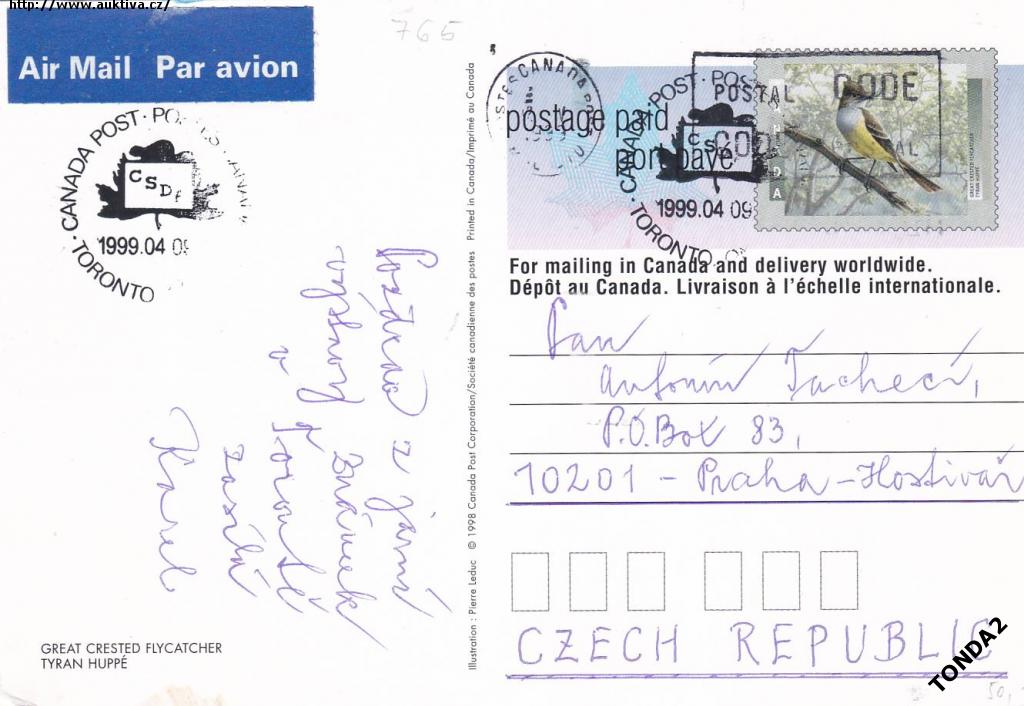 http://www.auktiva.cz/
765
Air Mail Par avion
CANADA POST · POSTES CANADA
CSDA
1999.04 09
· TORONTO
POSTES CANADA
postage paid
port payé
CANADA POST · POS
CSD
1999.04 09
· TORONTO
POSTAL CODE
CODE POSTAL
GREAT CRESTED FLYCATCHER
TYRAN HUPPÉ
For mailing in Canada and delivery worldwide.
Dépôt au Canada. Livraison à l'échelle internationale.
Pan
Antonín Tachecí,
P.O.Box 83,
10201 - Praha - Hostivař
CZECH REPUBLIC
Pozdrav z jarní
výstavy známek
v Torontě
zasílá
Karel
GREAT CRESTED FLYCATCHER
TYRAN HUPPÉ
Illustration : Pierre Leduc © 1998 Canada Post Corporation/Société canadienne des postes Printed in Canada/Imprimé au Canada
TONDA2
50,-